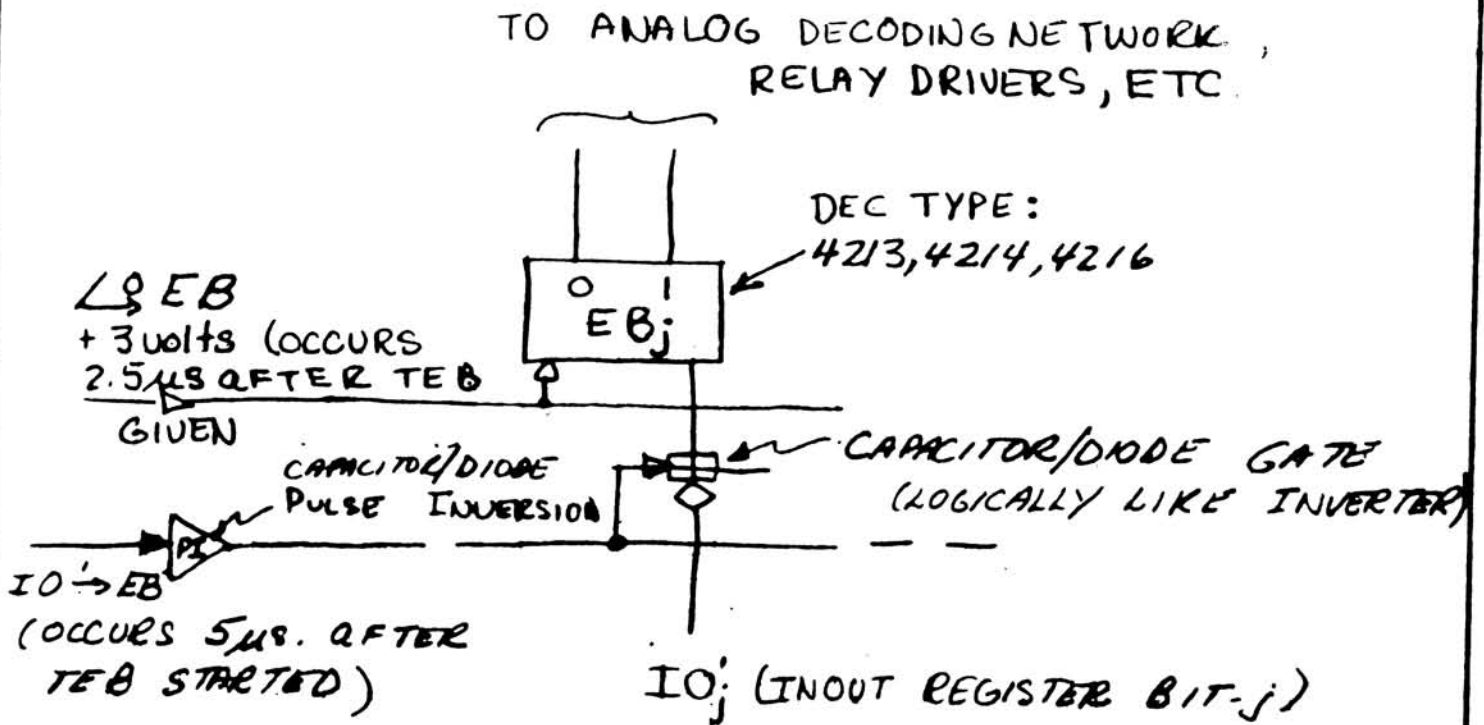 TO ANALOG DECODING NETWORK,
RELAY DRIVERS, ETC.
DEC TYPE:
4213, 4214, 4216
0 1
EBj
EB
+3 volts (OCCURS
2.5μs AFTER TEB
GIVEN
CAPACITOR/DIODE
PULSE INVERSION
CAPACITOR/DIODE GATE
(LOGICALLY LIKE INVERTER)
PI
IO →¹ EB
(OCCURS 5μs. AFTER
TEB STARTED)
IO¹j (INOUT REGISTER BIT-j)